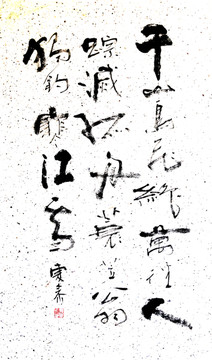 千山鳥飛絶萬徑人
踪滅孤舟蓑笠翁
獨釣寒江雪